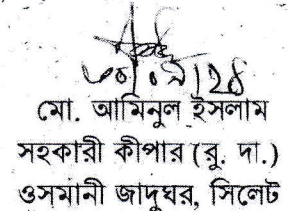 মো. আমিনুল ইসলাম
সহকারী কীপার (রু. দা.)
ওসমানী জাদুঘর, সিলেট